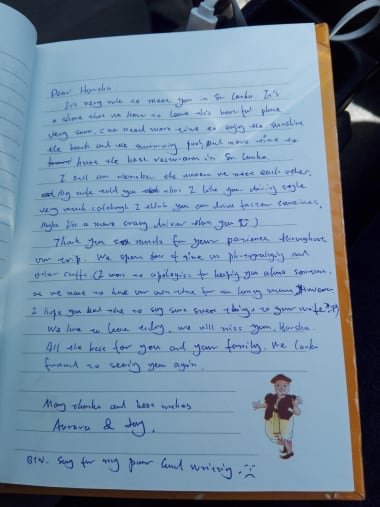 Dear Harsha
It's very nice to meet you in Sri Lanka. It's
a shame that we have to leave this beautiful place
very soon. we need more time to enjoy the sunshine
the beach and the swimming pool, and more time to
have the best restaurant in Sri Lanka.
I still can remember the moment we meet each other.
My wife told you that I like your driving style
very much. (although I think you can drive faster sometimes,
maybe I'm a more crazy driver than you)
Thank you so much for your patience throughout
our trip. We spent lots of time on photography and
other stuffs (I want to apologise for keeping you alone sometimes
as we want to have our own time for our honey moon). However
I hope you had time to say some sweet things to your wife
We have to leave today, we will miss you, Harsha.
All the best for you and your family. We look
forward to seeing you again.
Many thanks and best wishes
Aurora & Jay.
BTW. Sorry for my poor hand writing.